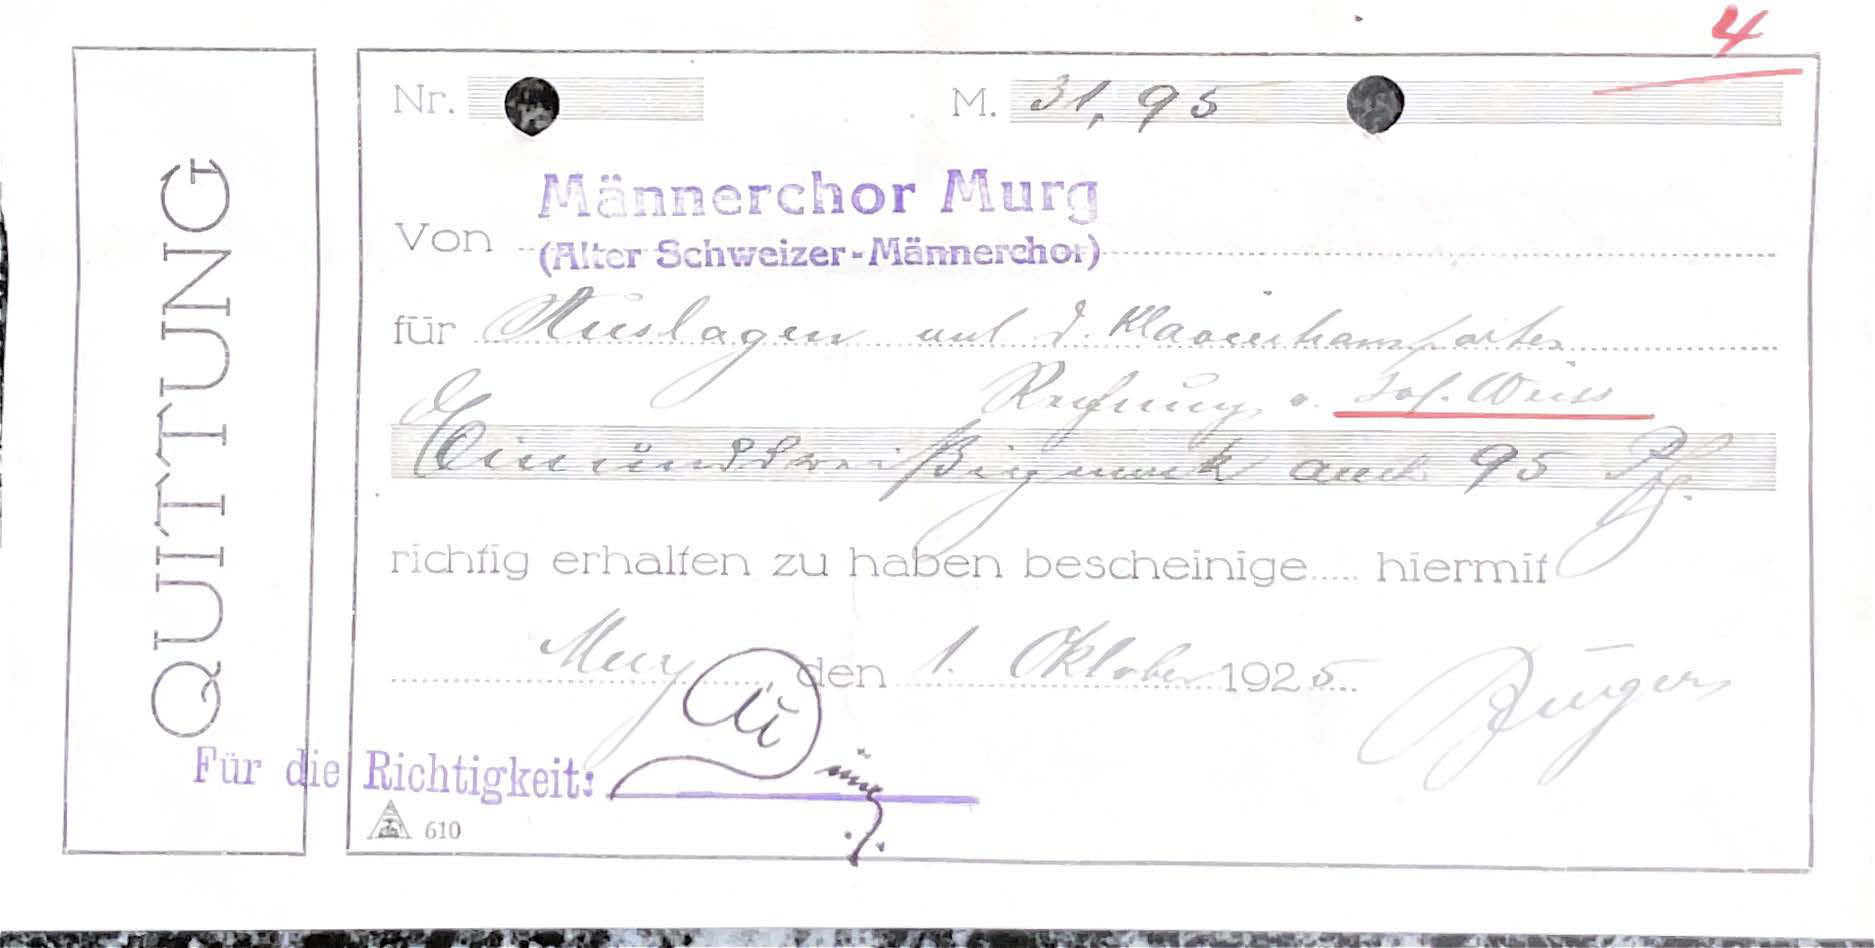 4
QUITTUNG
Nr. M. 31,95
Männerchor Murg
Von (Alter Schweizer-Männerchor)
für Auslagen und d. Klaviertransportes
Rechnung v. Jos. Weiss
Einunddreißigmark auch 95 Pfg.
richtig erhalten zu haben bescheinige..... hiermit
Murg den 1. Oktober 1925.
Für die Richtigkeit:
610